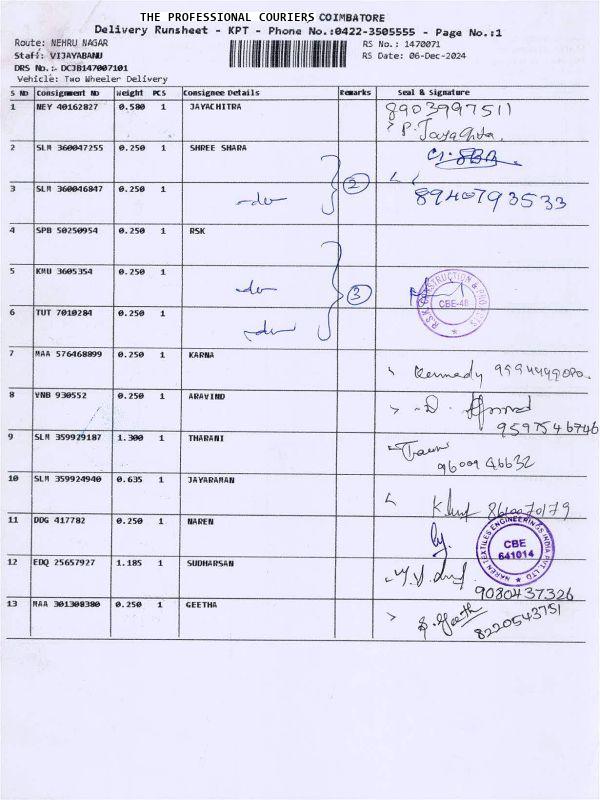 THE PROFESSIONAL COURIERS COIMBATORE
Delivery Runsheet - KPT - Phone No.:0422-3505555 - Page No.:1
Route: NEHRU NAGAR
RS No.: 1470071
Staff: VIJAYABANU
RS Date: 06-Dec-2024
DRS No.:- DCJB147007101
Vehicle: Two Wheeler Delivery
S No Consignment No Weight PCS Consignee Details Remarks Seal & Signature
1 NEY 40162827 0.580 1 JAYACHITRA 8903997511
P. Jayachitra
2 SLM 360047255 0.250 1 SHREE SHARA
3 SLM 360046847 0.250 1 -do- 2 8940793533
4 SPB 50250954 0.250 1 RSK
5 KMU 3605354 0.250 1 -do- 3
R.S.K CONSTRUCTION & PROJECTS CBE-48
6 TUT 7010284 0.250 1 -do-
7 MAA 576468899 0.250 1 KARNA Kennedy
8 VNB 930552 0.250 1 ARAVIND
9597546746
9 SLM 359929187 1.300 1 THARANI
9600946632
10 SLM 359924940 0.635 1 JAYARAMAN
8610070179
11 DDG 417782 0.250 1 NAREN
NAREN TEXTILES ENGINEERINGS INDIA PVT. LTD CBE 641014
12 EDQ 25657927 1.185 1 SUDHARSAN
9080437326
13 MAA 301308380 0.250 1 GEETHA S. Geetha
8220543751